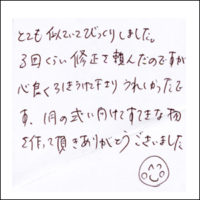 とても似ていてびっくりしました。
3回くらい修正を頼んだのですが
心良くひきうけて下さり うれしかったで
す。1月の式に向けてすてきな物
を作って頂きありがとうございました